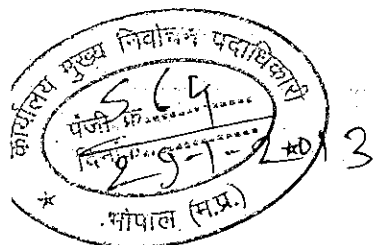 कार्यालय मुख्य निर्वाचन पदाधिकारी
पंजी क्र.............
दिनांक.............
29-1-2013
भोपाल (म.प्र.)